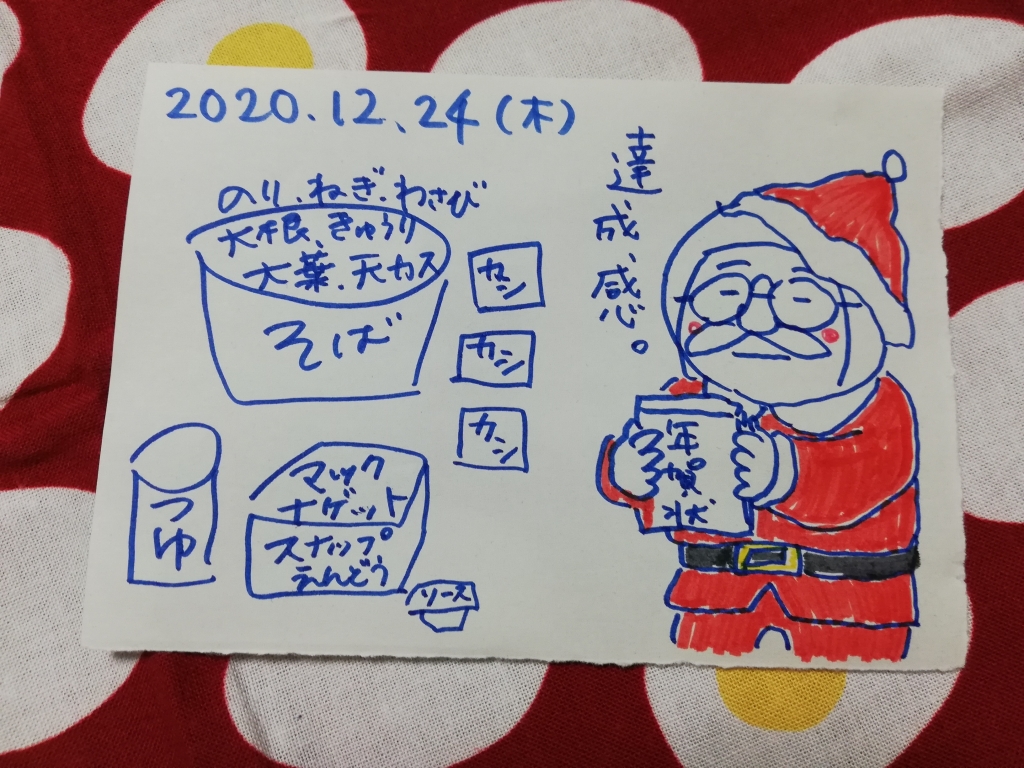 2020.12.24(木)
のり、ねぎ、わさび
大根、きゅうり
大葉、天カス
そば
カン
カン
カン
つゆ
マック
ナゲット
スナップ
えんどう
ソース
達成感。
年賀状